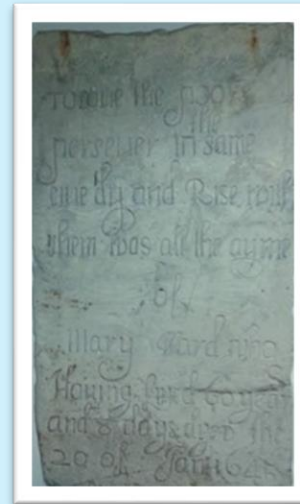 To loue the poore
the
perseuer in same
liue dy and Rise with
them was all the ayme
of
Mary Ward who
Hauing 60 years
and 8 days dyed the
20 of Jan 1645